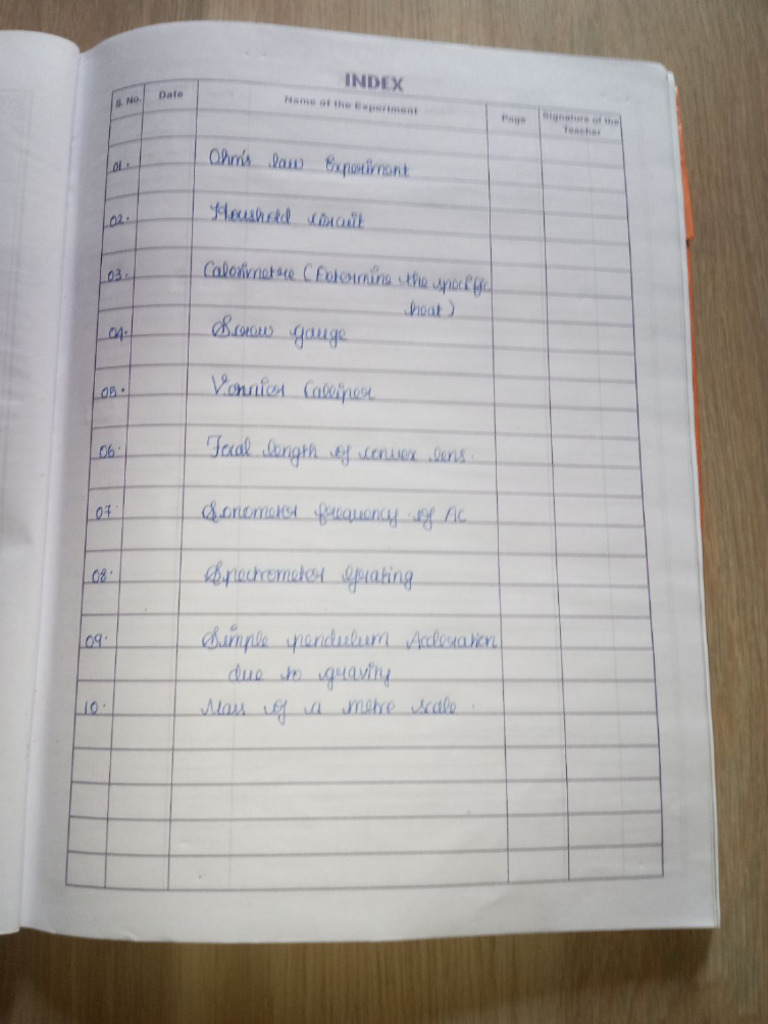 INDEX
S. No. Date Name of the Experiment Page Signature of the Teacher
01. Ohm's law Experiment
02. Houshold circuit
03. Calorimetre (Determine the specific
heat)
04. Screw gauge
05. Vernier Calliper
06. Focal length of convex lens.
07. Sonometer frequency of AC
08. Spectrometer grating
09. Simple pendulum Accleration
due to gravity
10. Mass of a metre scale.